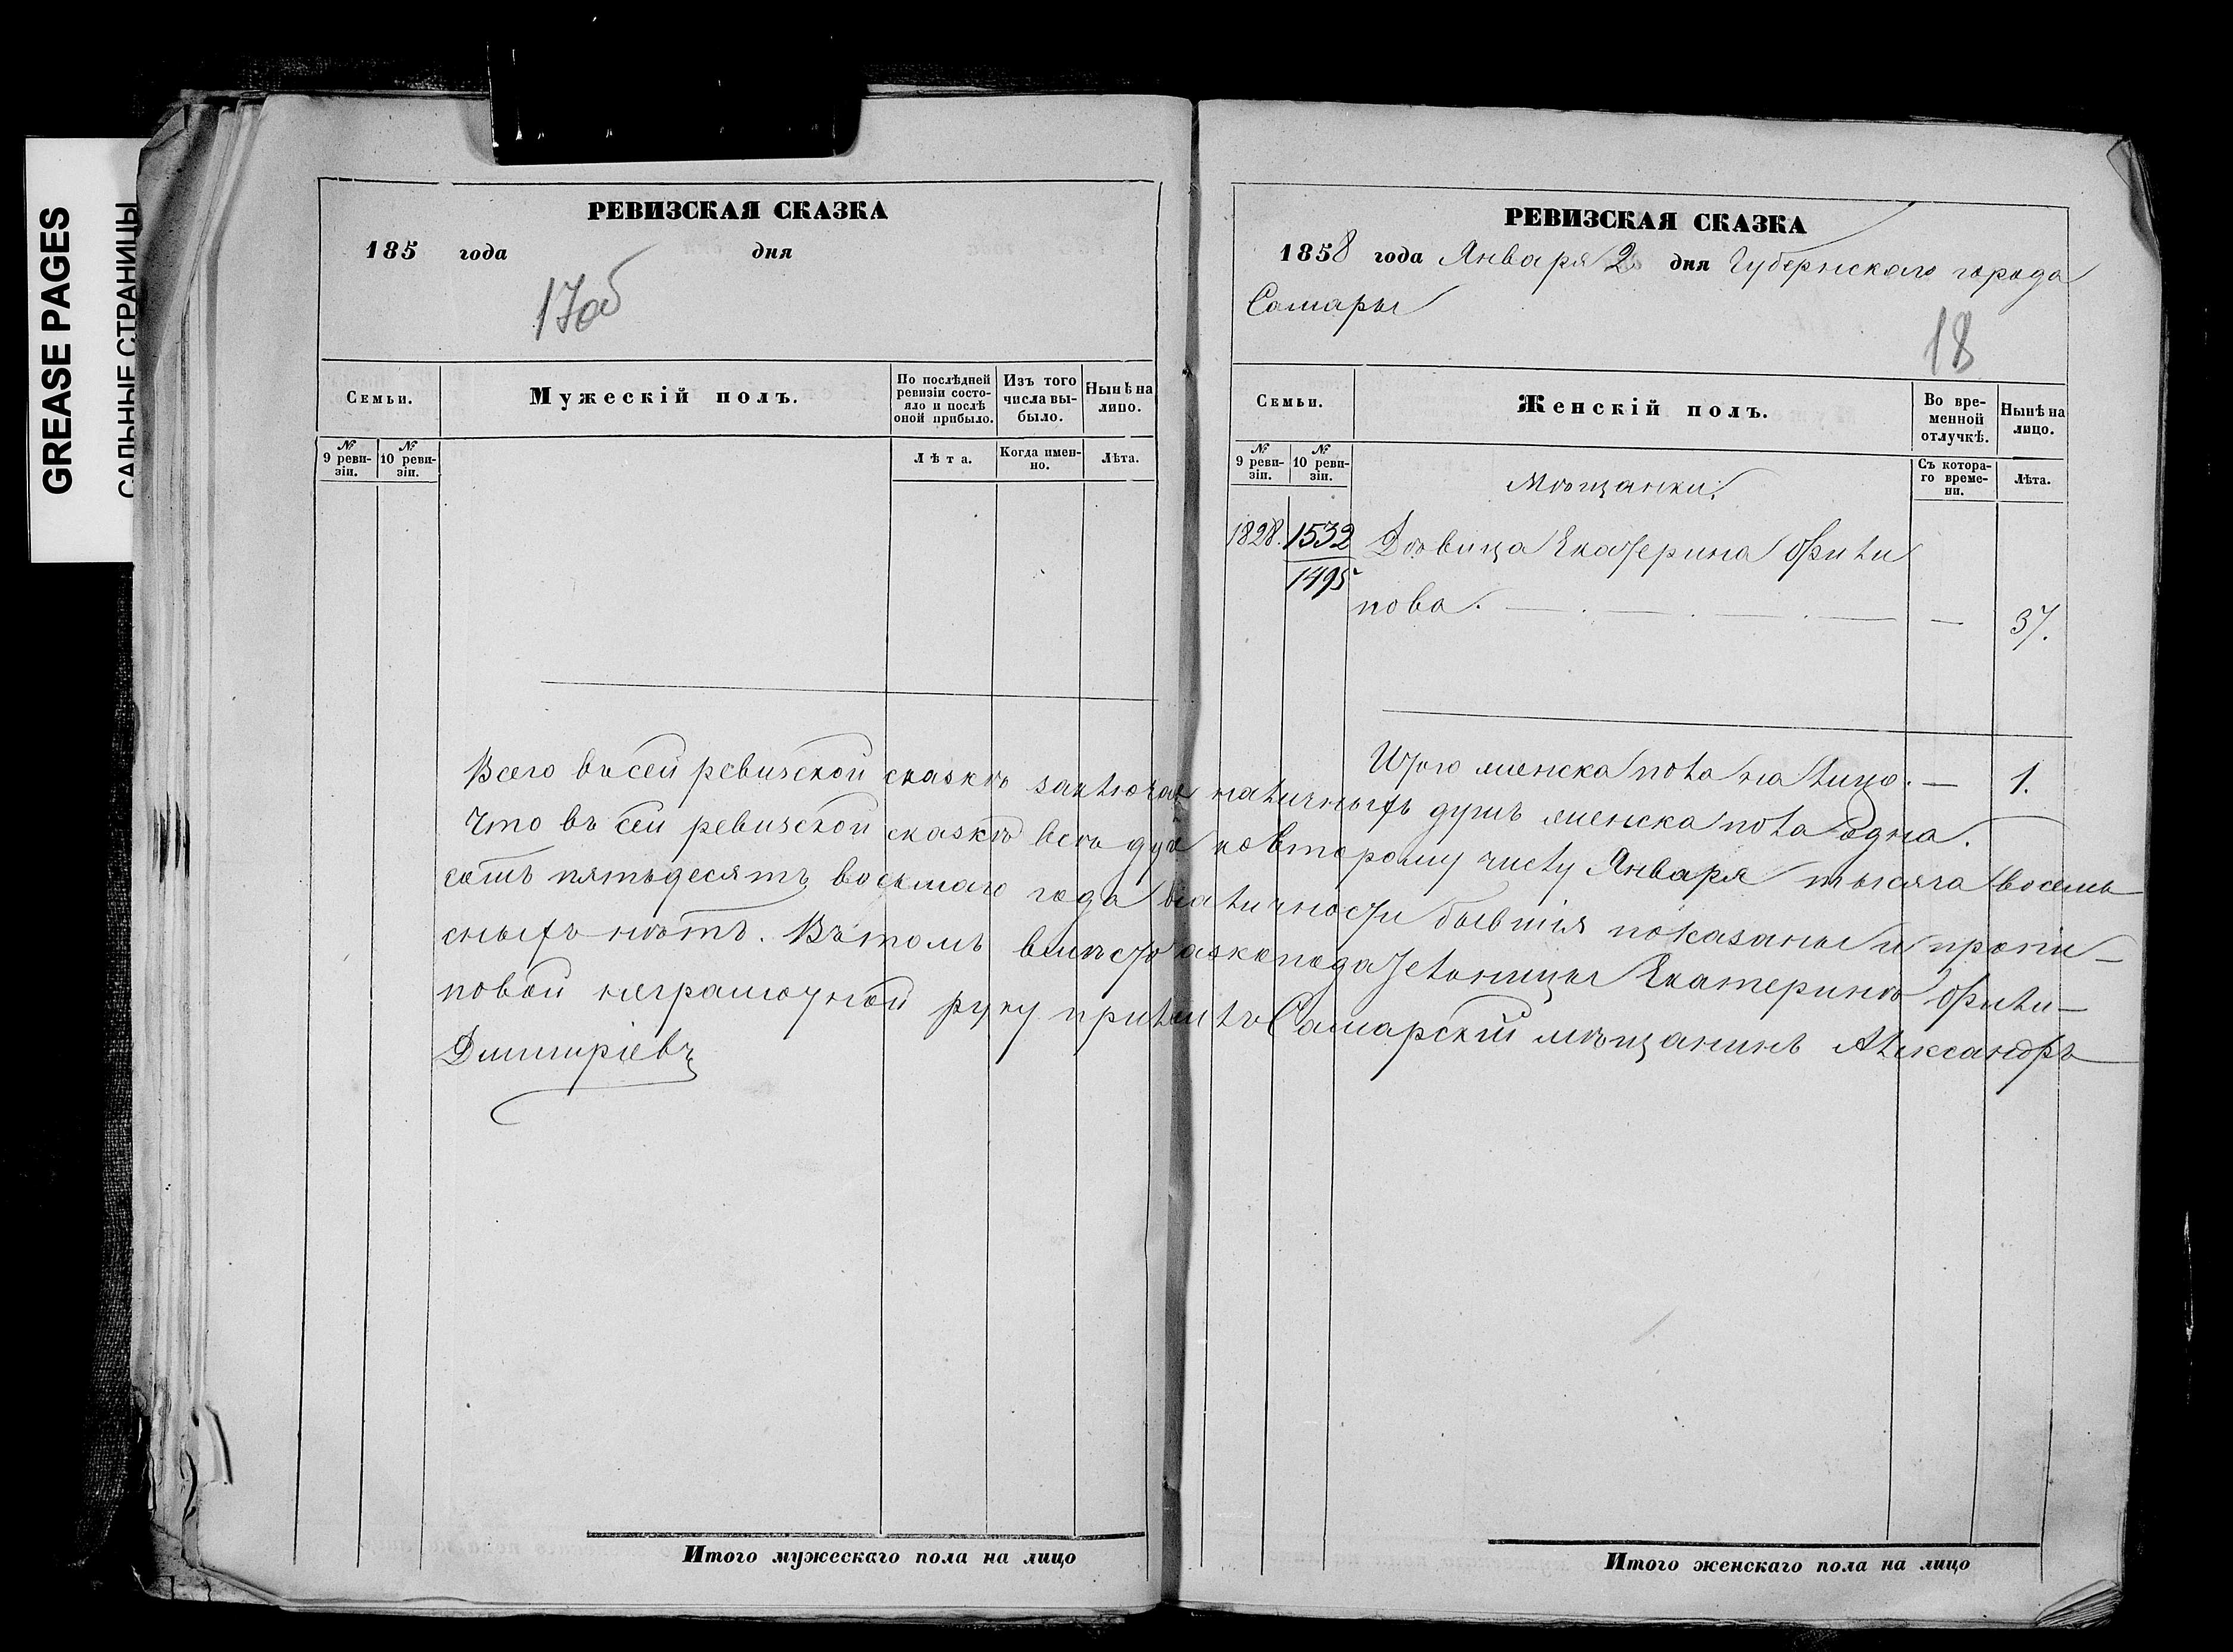 GREASE PAGES
САЛЬНЫЕ СТРАНИЦЫ
РЕВИЗСКАЯ СКАЗКА
185 года дня
17об
Семьи.
Мужескій полъ.
По послѣдней ревизіи состояло и послѣ оной прибыло.
Изъ того числа выбыло.
Нынѣ на лицо.
№ 9 ревизіи.
№ 10 ревизіи.
Лѣта.
Когда именно.
Лѣта.
РЕВИЗСКАЯ СКАЗКА
1858 года Января 2 дня Губернскаго города
Самары
18
Семьи.
Женскій полъ.
Во временной отлучкѣ.
Нынѣ на лицо.
№ 9 ревизіи.
№ 10 ревизіи.
Съ котораго времени.
Лѣта.
Мѣщанки.
1828. 1532 Дѣвица Екатерина Фили
1495
пова. — . — . — . — — 37.
Итого женска пола на лицо. — 1.
Всего въ сей ревизской сказкѣ заключая наличныхъ душъ женска пола одна.
Что въ сей ревизской сказкѣ всѣ ду ко второму числу Января тысяча восемь
сотъ пятьдесятъ восьмаго года наличности бывшія показаны и пропи-
сныхъ нѣтъ. Въ томъ вмѣсто сказкоподательницы Екатерины Фили-
повой неграмотной руку приложилъ Самарскій мѣщанинъ Александръ
Дмитріевъ
Итого мужескаго пола на лицо
Итого женскаго пола на лицо